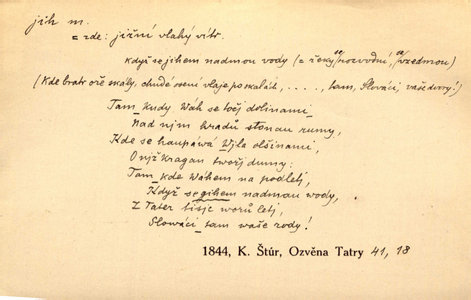 jih m.
= zde: jižní vlahý vítr.
Když se jihem nadmou vody (= řeky se rozvodní, se vzedmou)
(Kde bratr oře skály, chudé osení vlaje po skalách, ...., tam, Slováci, vaše dvory!)
Tam kudy Wáh se točj dolinami
Nad njm hradů stonau rumy,
Kde se haupáwá Wjla olšinami,
O njž kragan twořj dumy:
Tam kde Wáhem na podletj,
Když se gihem nadmau wody,
Z Tater tisjc worů letj,
Slowáci tam waše rody!
1844, K. Štúr, Ozvěna Tatry 41, 18